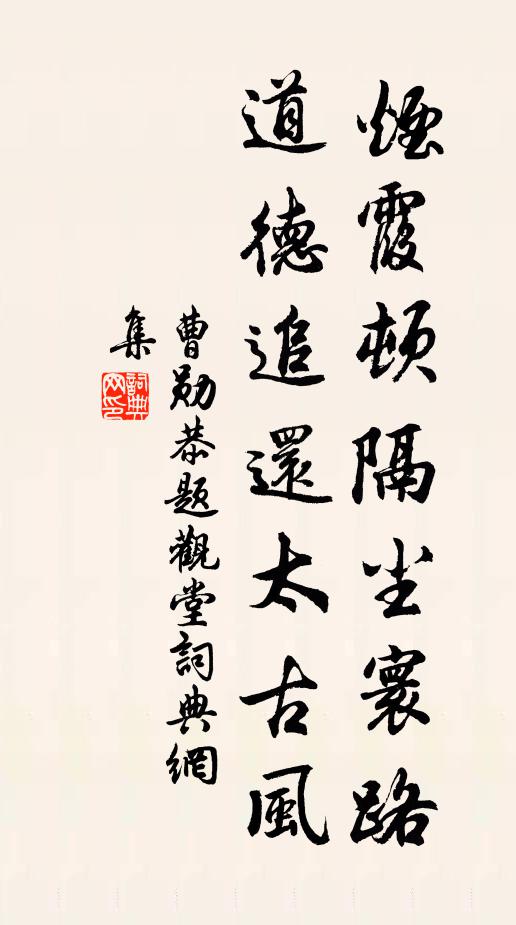 煙霞頓隔尘寰路
道德追還太古風
曹勛恭题觀堂詞典網
集
詞典
网印